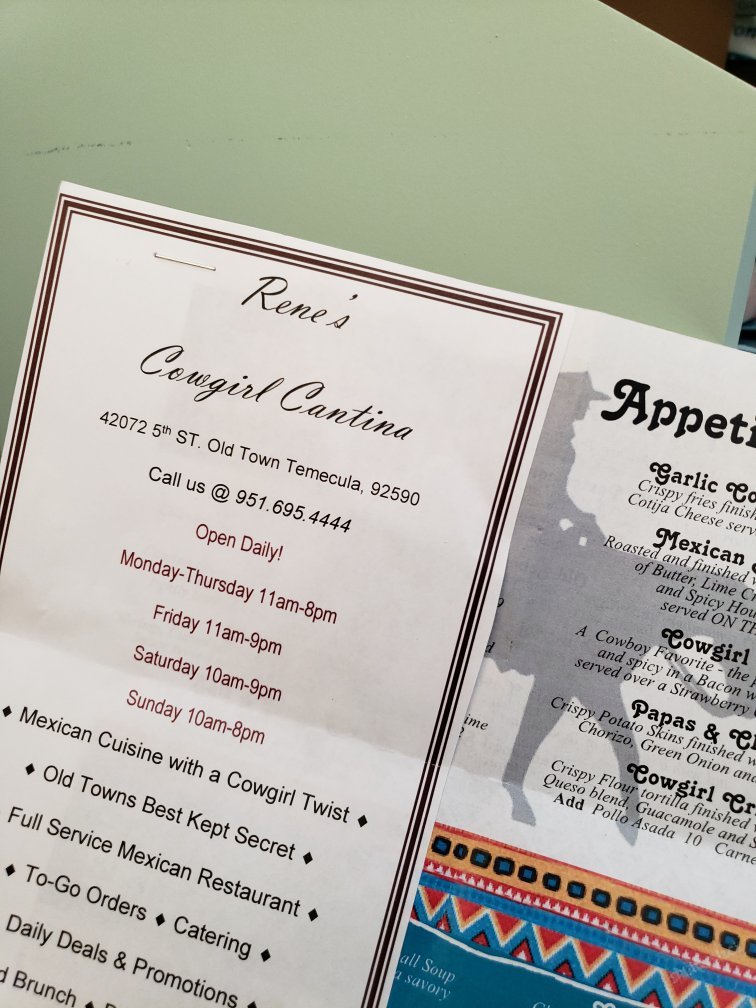 Rene's
Cowgirl Cantina
42072 5th ST. Old Town Temecula, 92590
Call us @ 951.695.4444
Open Daily!
Monday-Thursday 11am-8pm
Friday 11am-9pm
Saturday 10am-9pm
Sunday 10am-8pm
♦ Mexican Cuisine with a Cowgirl Twist ♦
♦ Old Towns Best Kept Secret ♦
Full Service Mexican Restaurant ♦
♦ To-Go Orders ♦ Catering ♦
Daily Deals & Promotions ♦
Brunch ♦
Appeti
Garlic Co
Crispy fries finish
Cotija Cheese serv
Mexican
Roasted and finished
of Butter, Lime Cr
and Spicy Hou
served ON TH
Cowgirl
A Cowboy Favorite - the p
and spicy in a Bacon w
served over a Strawberry
Papas & Ch
Crispy Potato Skins finished w
Chorizo, Green Onion and
Cowgirl Cri
Crispy Flour tortilla finished
Queso blend, Guacamole and S
Add Pollo Asada 10 Carne
ime
?
all Soup
a savory